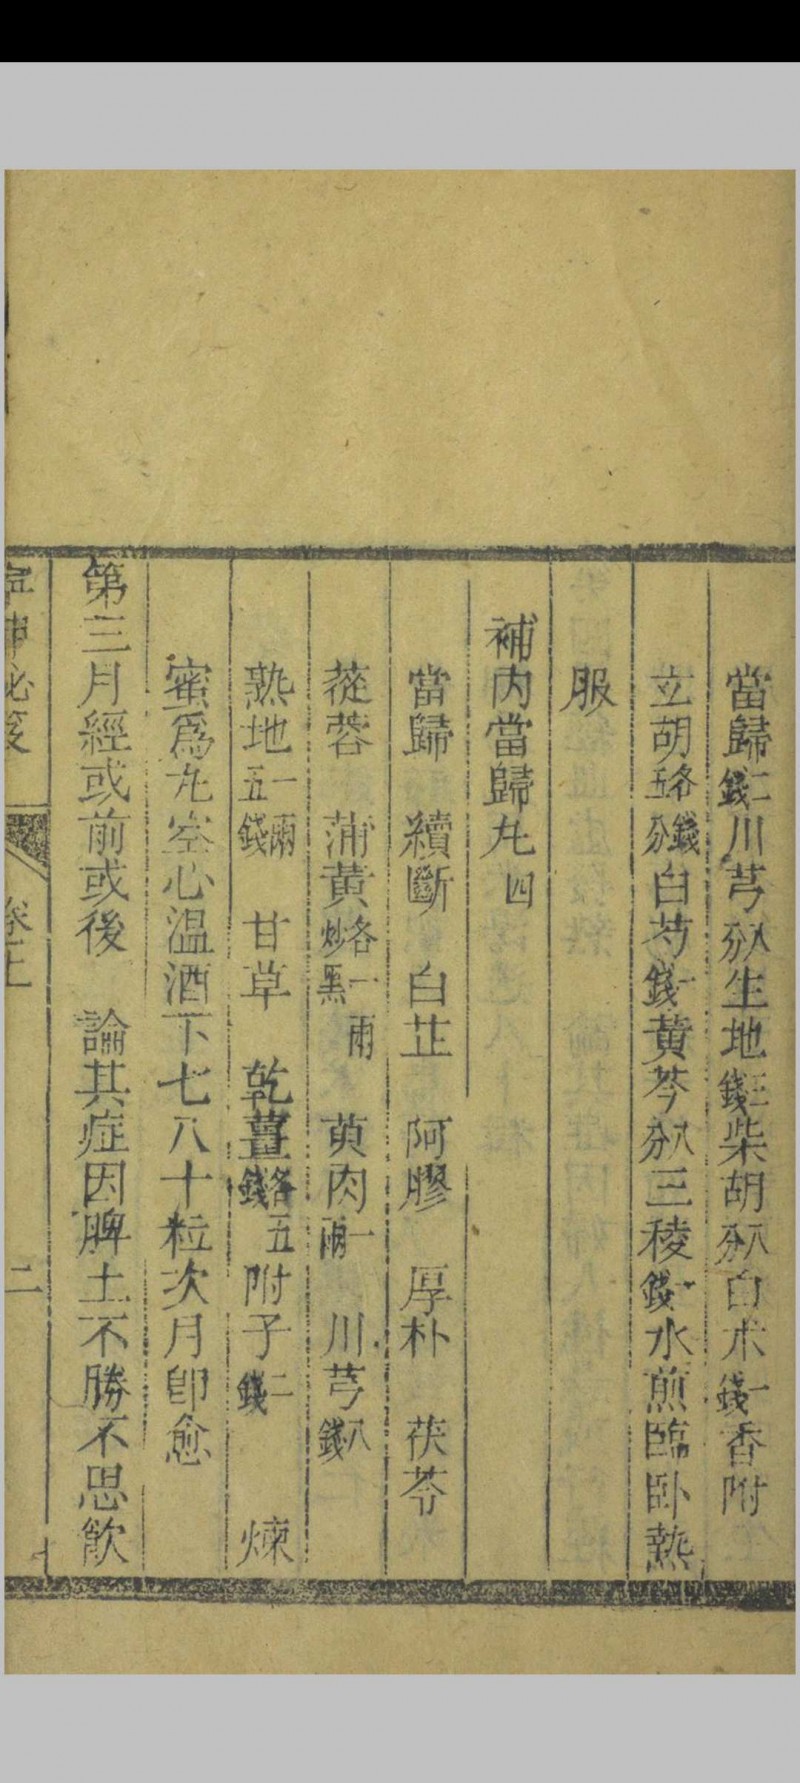 當歸二錢川芎八分生地三錢柴胡八分白朮一錢香附
立胡各錢五分白芍一錢黃芩八分三稜一錢水煎臨卧熱
服
補内當歸丸四
當歸 續斷 白芷 阿膠 厚朴 茯苓
蓯蓉 蒲黃炒黑各一兩 萸肉一兩 川芎八錢
熟地一兩五錢 甘草 乾薑各五錢附子二錢 煉
蜜爲丸空心温酒下七八十粒次月卽愈
第三月經或前或後 論其症因脾土不勝不思飲
卷上 二